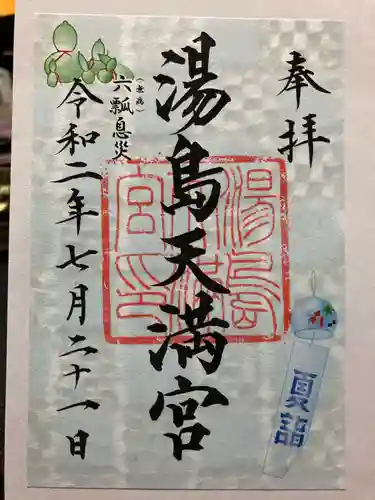 奉拝
湯島天満宮
(無病)
六瓢息災
令和二年七月二十一日
湯島天満宮印
夏詣